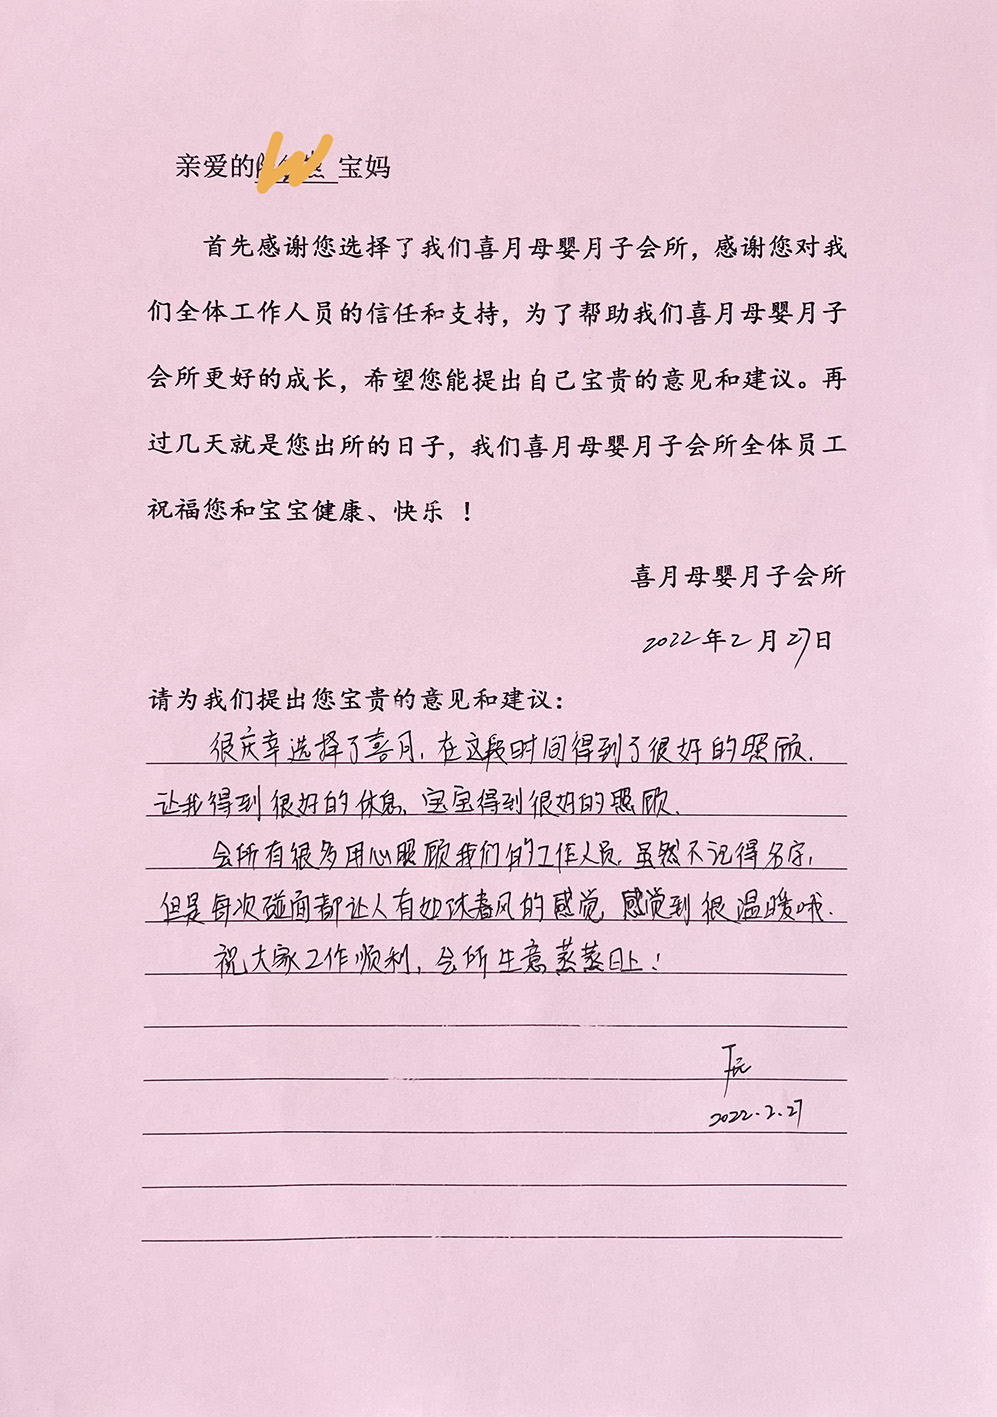 亲爱的 宝妈
首先感谢您选择了我们喜月母婴月子会所，感谢您对我
们全体工作人员的信任和支持，为了帮助我们喜月母婴月子
会所更好的成长，希望您能提出自己宝贵的意见和建议。再
过几天就是您出所的日子，我们喜月母婴月子会所全体员工
祝福您和宝宝健康、快乐 ！
喜月母婴月子会所
2022年2月27日
请为我们提出您宝贵的意见和建议：
很庆幸选择了喜月，在这段时间得到了很好的照顾，
让我得到很好的休息，宝宝得到很好的照顾.
会所有很多用心照顾我们的工作人员，虽然不记得名字，
但是每次碰面都让人有如沐春风的感觉，感觉到很温暖哦.
祝大家工作顺利，会所生意蒸蒸日上！
2022.2.27